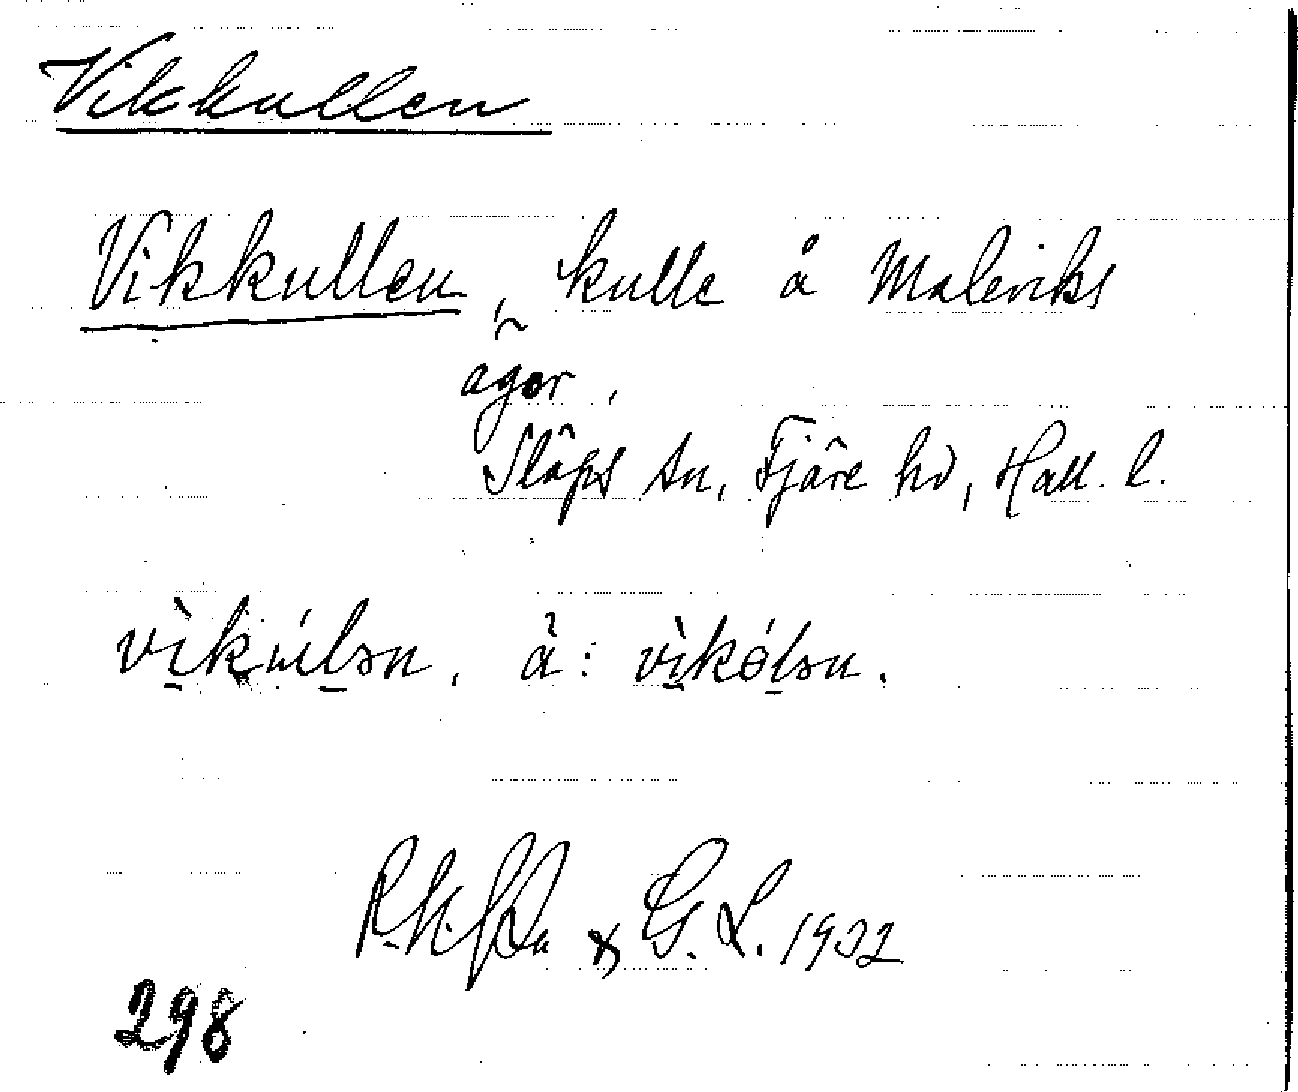 Vikkullen
Vikkullen, kulle å Maleviks
ägor,
Släps sn, Fjäre hd, Hall. l.
vìkúlən, ä: vìkólən.
G. L. 1932
298